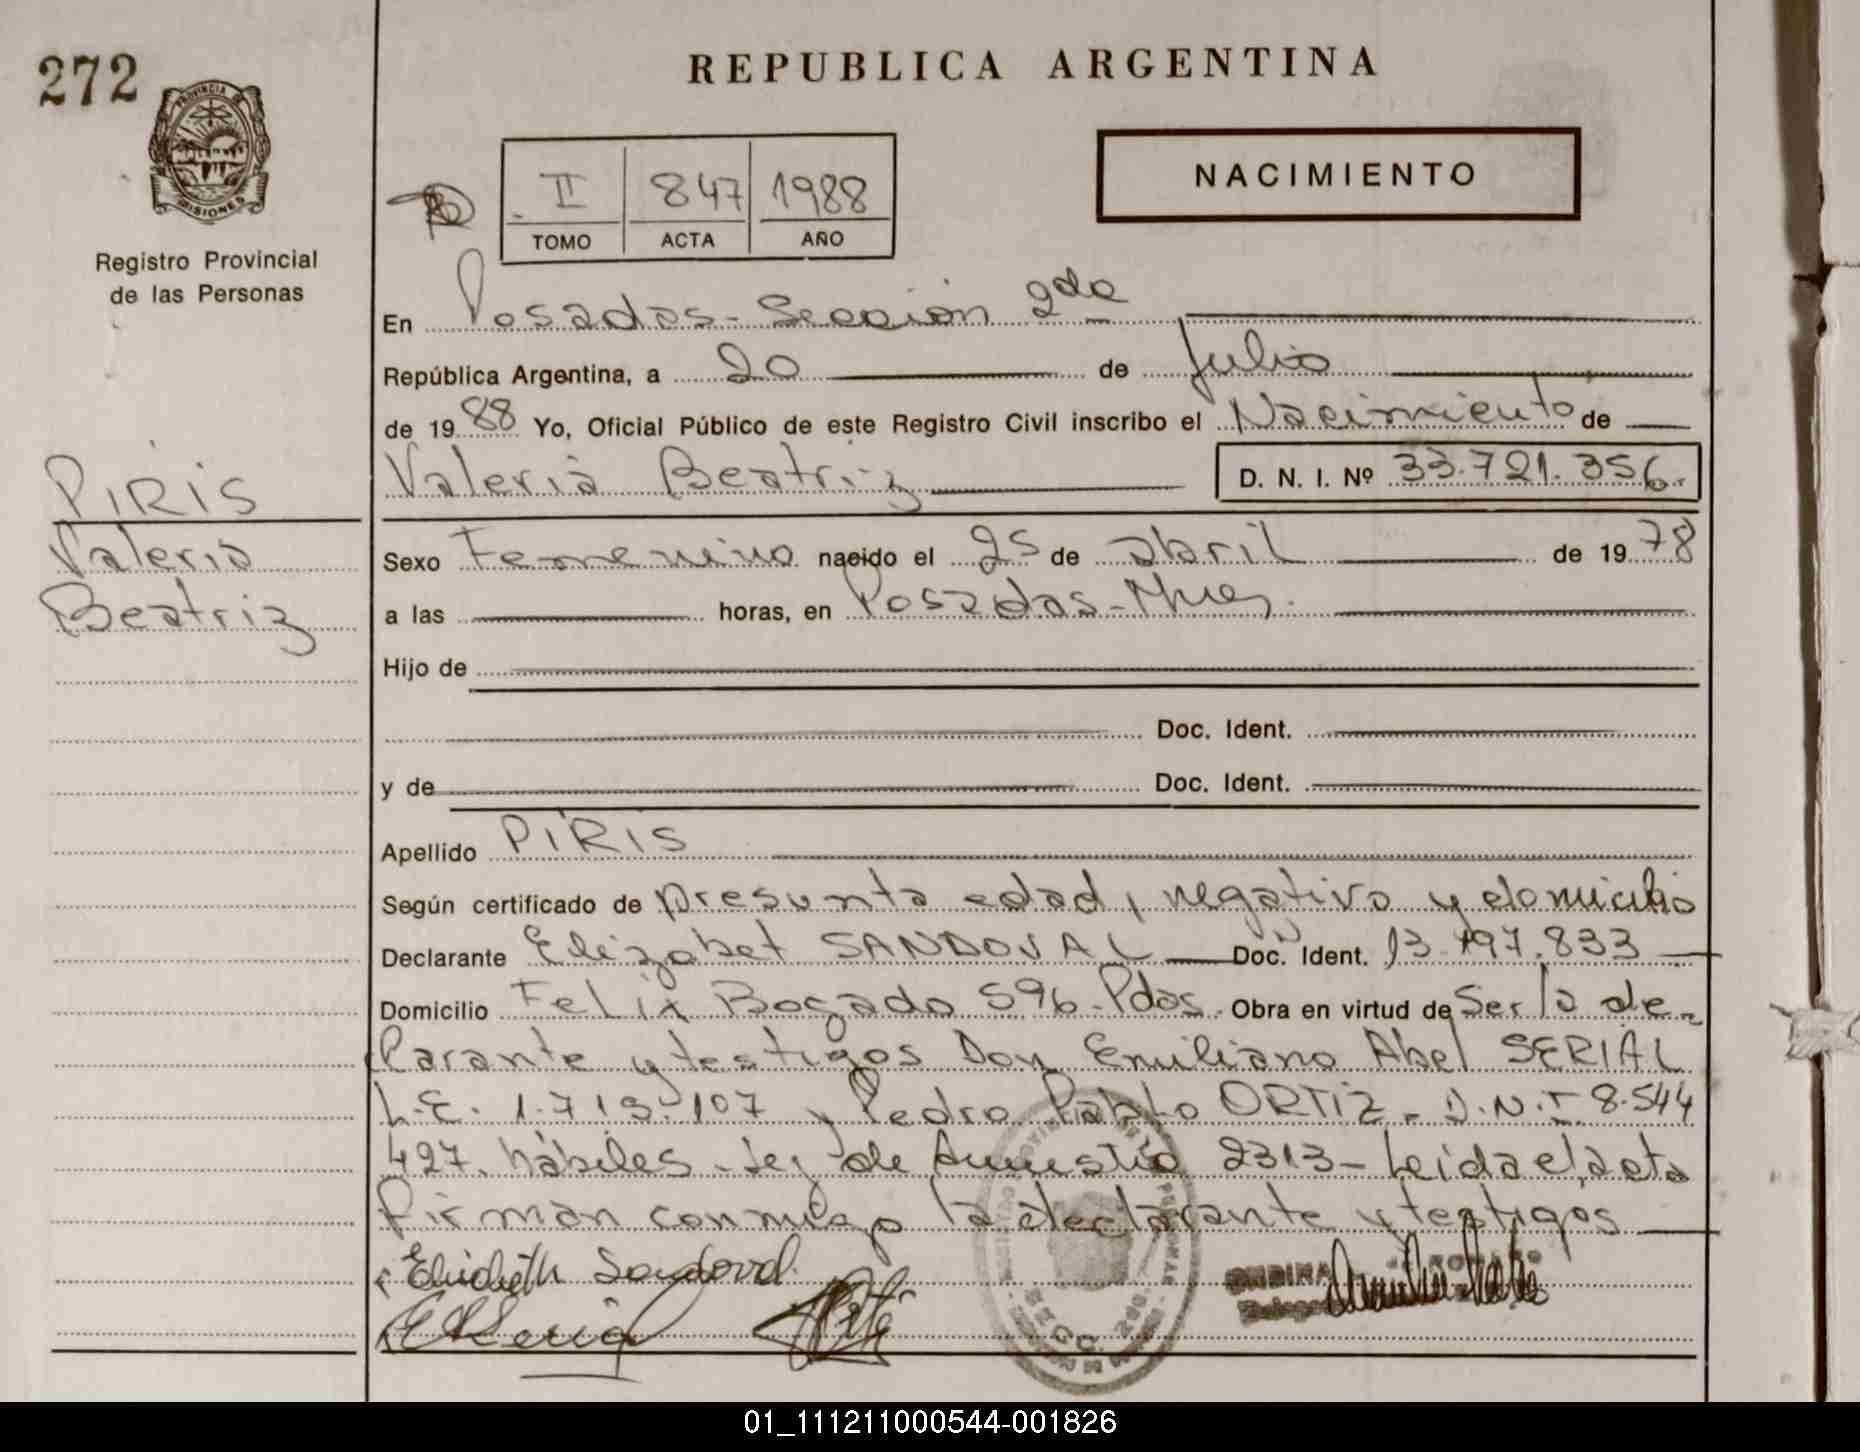 272
PROVINCIA DE
MISIONES
Registro Provincial
de las Personas
REPUBLICA ARGENTINA
II 847 1988
TOMO ACTA AÑO
NACIMIENTO
En Posadas - Sección 2da
República Argentina, a 20 de Julio
de 1988 Yo, Oficial Público de este Registro Civil inscribo el Nacimiento de
Valeria Beatriz D. N. I. Nº 33.721.356.
PIRIS
Valeria
Beatriz
Sexo Femenino nacido el 25 de abril de 1978
a las horas, en Posadas - Mnes.
Hijo de
Doc. Ident.
y de Doc. Ident.
Apellido PIRIS
Según certificado de presunta edad, negativo y domicilio
Declarante Elizabet SANDOVAL Doc. Ident. 13.197.833
Domicilio Felix Bogado 596 - Pdas. Obra en virtud de Ser la de-
clarante y testigos Don Emiliano Abel SERIAL
L.E. 1.719.107 y Pedro Pablo ORTIZ - D.N.I 8.544
427. hábiles - Ley de Amnistia 2313 - Leida el acta
firman conmigo la declarante y testigos
Elizabeth Sandoval
SECC. 2da.
01_111211000544-001826